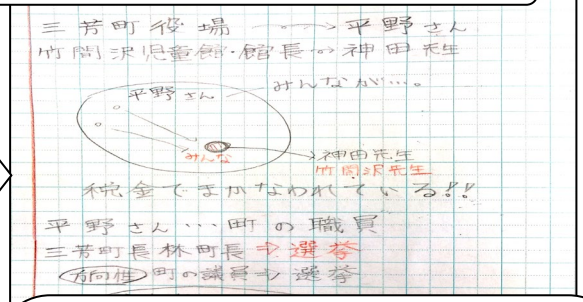 三芳町役場 → 平野さん
竹間沢児童館・館長⇨神田先生
平野さん
みんなが…。
みんな
→神田先生
竹間沢先生
税金でまかなわれている!!
平野さん…町の職員
三芳町長林町長⇨選挙
方向性 町の議員⇨選挙